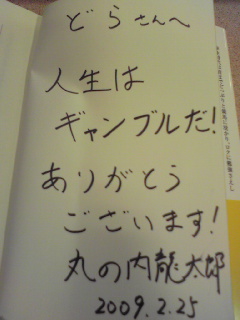 どらさんへ
人生は
ギャンブルだ!
ありがとう
ございます!
丸の内龍太郎
2009.2.25